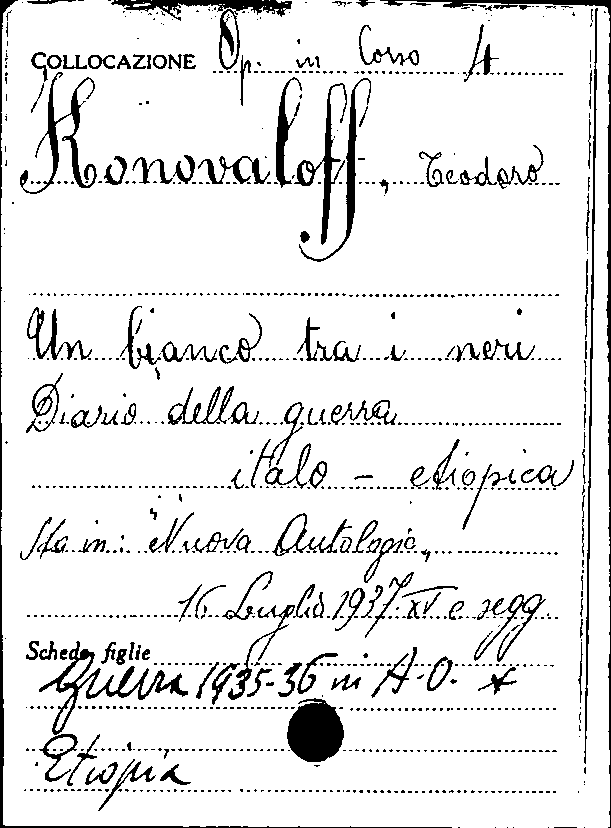 COLLOCAZIONE Op. in Corso 4
Konovaloff, Teodoro
Un bianco tra i neri
Diario della guerra
italo - etiopica
Sta in: "Nuova Antologia"
16 Luglio 1937. XV e segg.
Schede figlie
Guerra 1935-36 in A.O. *
Etiopia